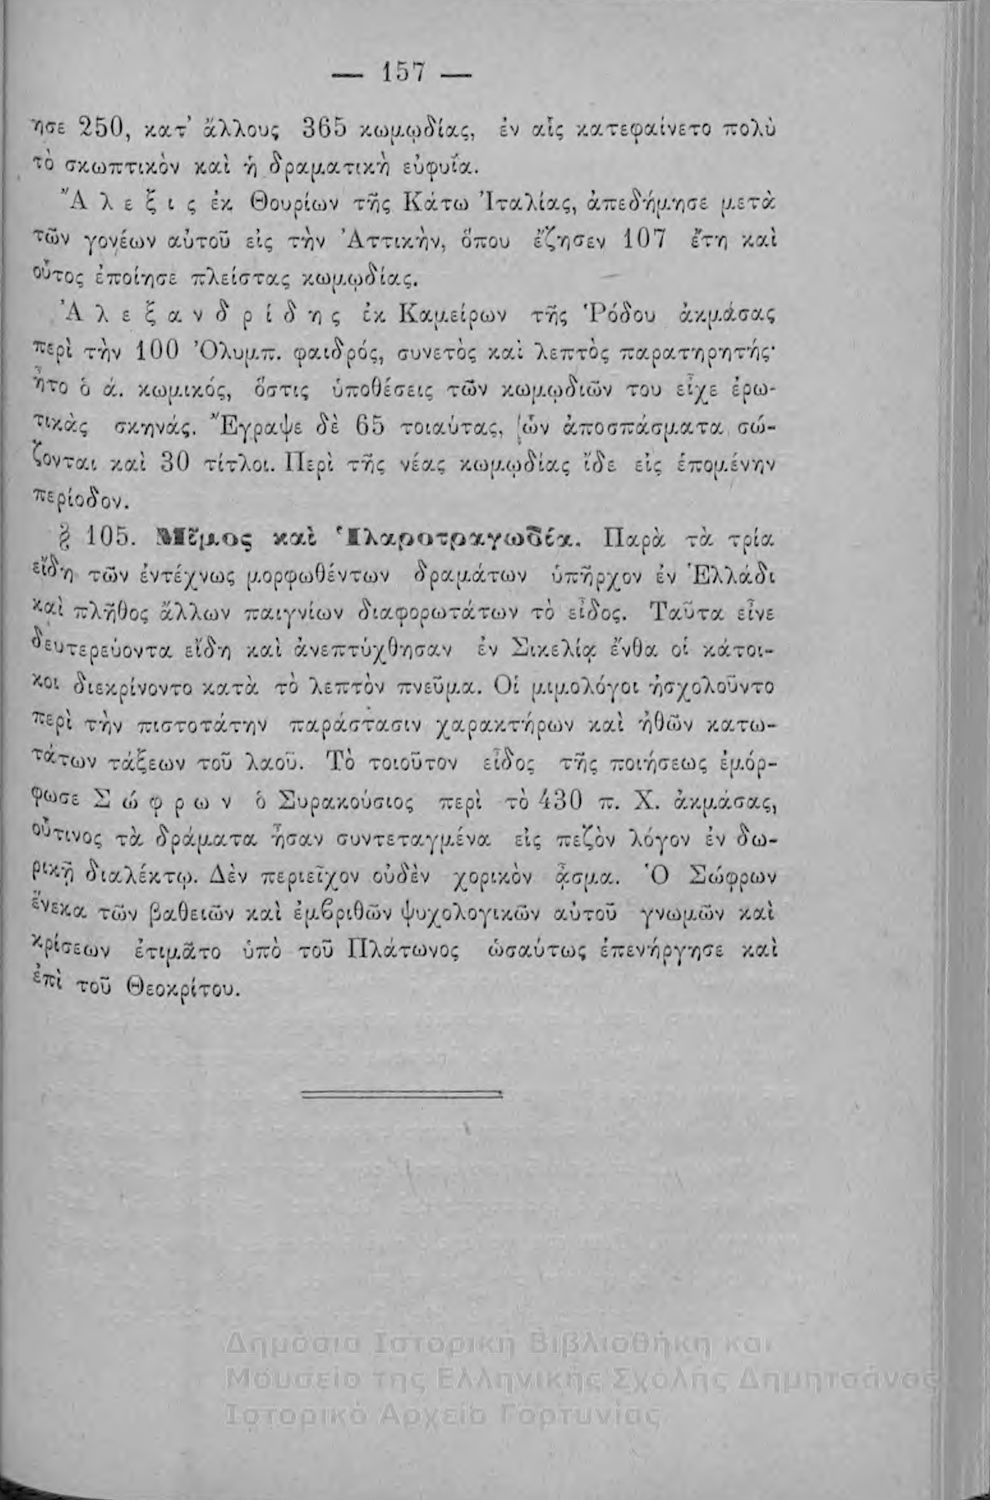 — 157 —
ησε 250, κατ’ ἄλλους 365 κωμῳδίας, ἐν αἷς κατεφαίνετο πολὺ
τὸ σκωπτικὸν καὶ ἡ δραματικὴ εὐφυΐα.
Ἄλεξις ἐκ Θουρίων τῆς Κάτω Ἰταλίας, ἀπεδήμησε μετὰ
τῶν γονέων αὐτοῦ εἰς τὴν Ἀττικὴν, ὅπου ἔζησεν 107 ἔτη καὶ
οὗτος ἐποίησε πλείστας κωμῳδίας.
Ἀλεξανδρίδης ἐκ Καμείρων τῆς Ῥόδου ἀκμάσας
περὶ τὴν 100 Ὀλυμπ. φαιδρός, συνετὸς καὶ λεπτὸς παρατηρητής·
ἦτο ὁ ά. κωμικός, ὅστις ὑποθέσεις τῶν κωμῳδιῶν του εἶχε ἐρω-
τικὰς σκηνάς. Ἔγραψε δὲ 65 τοιαύτας, ὧν ἀποσπάσματα σώ-
ζονται καὶ 30 τίτλοι. Περὶ τῆς νέας κωμῳδίας ἴδε εἰς ἑπομένην
περίοδον.
§ 105. Μῖμος καὶ Ἱλαροτραγωδία. Παρὰ τὰ τρία
εἴδη τῶν ἐντέχνως μορφωθέντων δραμάτων ὑπῆρχον ἐν Ἑλλάδι
καὶ πλῆθος ἄλλων παιγνίων διαφορωτάτων τὸ εἶδος. Ταῦτα εἶνε
δευτερεύοντα εἴδη καὶ ἀνεπτύχθησαν ἐν Σικελίᾳ ἔνθα οἱ κάτοι-
κοι διεκρίνοντο κατὰ τὸ λεπτὸν πνεῦμα. Οἱ μιμολόγοι ἠσχολοῦντο
περὶ τὴν πιστοτάτην παράστασιν χαρακτήρων καὶ ἠθῶν κατω-
τάτων τάξεων τοῦ λαοῦ. Τὸ τοιοῦτον εἶδος τῆς ποιήσεως ἐμόρ-
φωσε Σώφρων ὁ Συρακούσιος περὶ τὸ 430 π. Χ. ἀκμάσας,
οὗτινος τὰ δράματα ἦσαν συντεταγμένα εἰς πεζὸν λόγον ἐν δω-
ρικῇ διαλέκτῳ. Δὲν περιεῖχον οὐδὲν χορικὸν ᾆσμα. Ὁ Σώφρων
ἕνεκα τῶν βαθειῶν καὶ ἐμβριθῶν ψυχολογικῶν αὐτοῦ γνωμῶν καὶ
κρίσεων ἐτιμᾶτο ὑπὸ τοῦ Πλάτωνος ὡσαύτως ἐπενήργησε καὶ
ἐπὶ τοῦ Θεοκρίτου.
Δημόσια Ιστορική Βιβλιοθήκη και
Μουσείο της Ελληνικής Σχολής Δημητσάνας
Ιστορικό Αρχείο Γορτυνίας